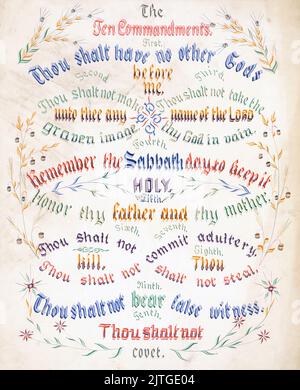 The
Ten Commandments.
First.
Thou shalt have no other Gods
before
me.
Second.
Thou shalt not make
unto thee any
graven image.
Third.
Thou shalt not take the
name of the LORD
thy God in vain.
Fourth.
Remember the Sabbath day to keep it
HOLY.
Fifth.
Honor thy father and thy mother.
Sixth.
Thou shalt not
kill.
Seventh.
Thou shalt not commit adultery.
Eighth.
Thou
shalt not steal.
Ninth.
Thou shalt not bear false witness.
Tenth.
Thou shalt not
covet.
alamy
Image ID: 2JTGE04
www.alamy.com